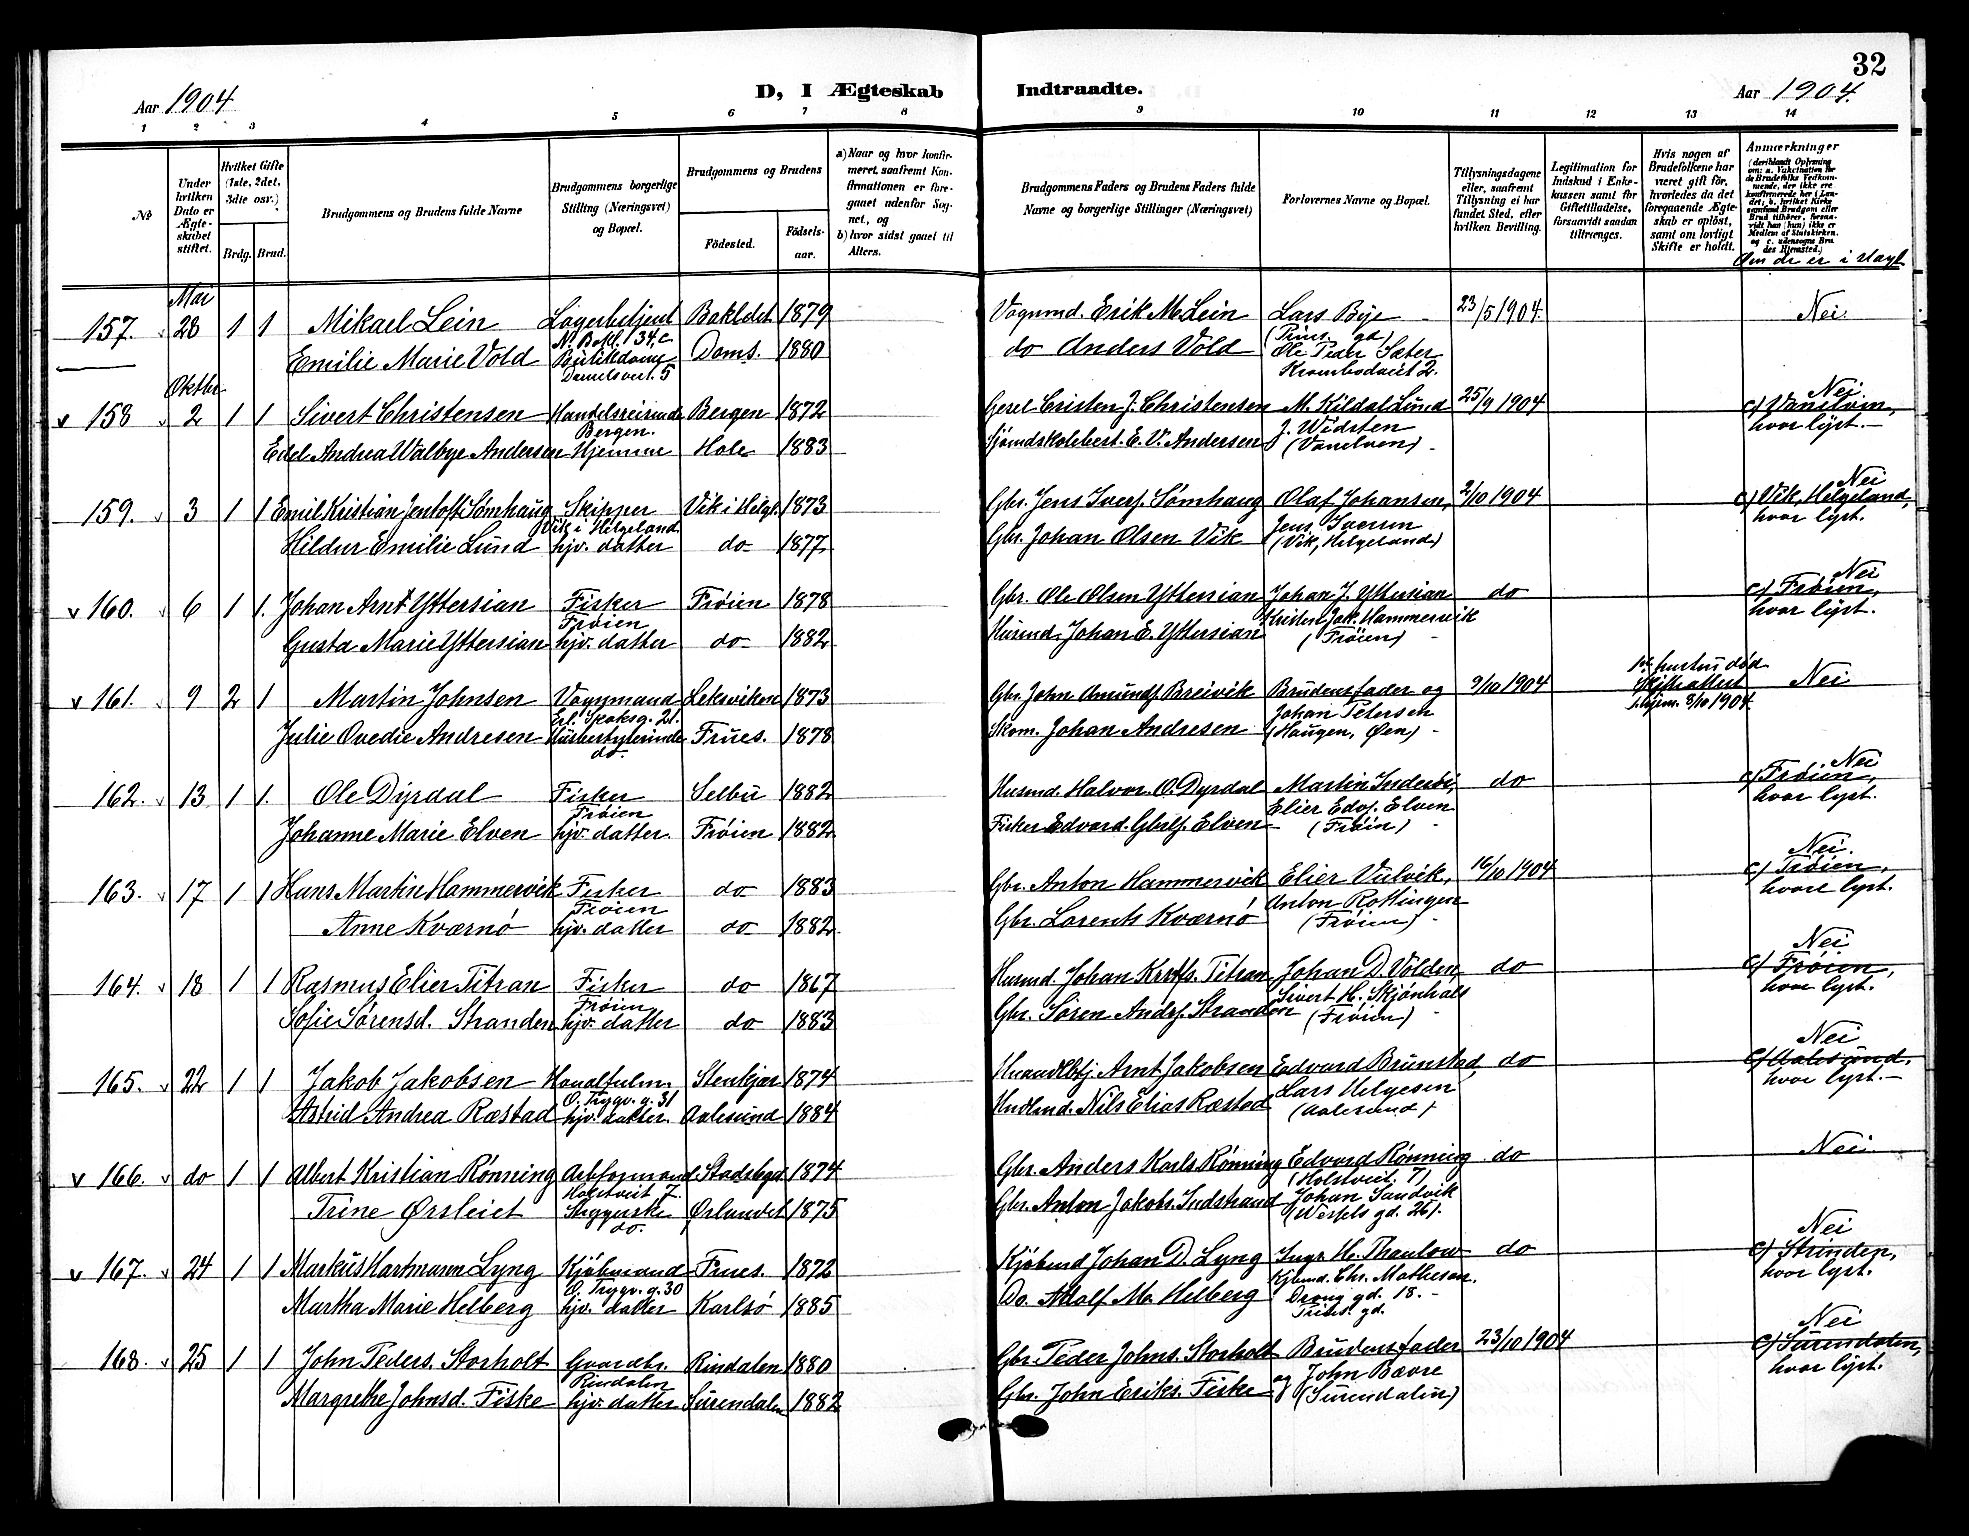 32
Aar 1904
D, I Ægteskab Indtraadte.
Aar 1904.
1 2 3 4 5 6 7 8 9 10 11 12 13 14
No
Under hvilken Dato er Ægteskabet stiftet.
Hvilket Gifte (1ste, 2det, 3die osv.)
Brdg. Brud.
Brudgommens og Brudens fulde Navne
Brudgommens borgerlige Stilling (Næringsvei) og Bopæl.
Brudgommens og Brudens
Fødested. Fødselsaar.
a) Naar og hvor konfirmeret, saafremt Konfirmationen er foregaaet udenfor Sognet, og
b) hvor sidst gaaet til Alters.
Brudgommens Faders og Brudens Faders fulde Navne og borgerlige Stillinger (Næringsvei)
Forlovernes Navne og Bopæl.
Tillysningsdagene eller, saafremt Tillysning ei har fundet Sted, efter hvilken Bevilling.
Legitimation for Indskud i Enkekassen samt for Giftetilladelse, forsaavidt saadan tiltrænges.
Hvis nogen af Brudefolkene har været gift før, hvorledes da det foregaaende Ægteskab er opløst, samt om lovligt Skifte er holdt.
Anmærkninger
(deriblandt Oplysning om: a. Vakcination for de Brudefolks Vedkommende, der ikke ere konfirmerede her i Landet; b. hvilket Kirkesamfund Brudgom eller Brud tilhører, forsaavidt han (hun) ikke er Medlem af Statskirken, og c. udensogns Brudes Hjemsted.)
Om de er i slægt
Mai
157. 28 1 1 Mikael Lein Lagerbetjent Bakldet 1879 Vognmd. Erik M. Lein Lars Bye 23/5 1904. Nei
N. Bakl. 34, c
Emilie Marie Vold Butikdame Doms. 1880 do Anders Vold Ole Peder Sæter
Danielsveit. 5 Krambodveit 2.
Oktbr
158 2 1 1 Sivert Christensen Handelsreisende Bergen 1872 M. Kildal Lund 25/9 1904 Nei
Bergen. J. Widsten c/ Vanelven,
Edel Andrea Walbye Andersen Hjemme Hole 1883 E. V. Andersen (Vanelven) hvor lyst.
159. 3 1 1 Emil Kristian Jentoft Sømhaug Skipper Vik i Helgl. 1873 Gbr. Jens Ivers. Sømhaug Olaf Johansen, 2/10 1904 Nei
Vik i Helgeland Jens Iversen c/ Vik, Helgeland,
Hildur Emilie Lund hjv. datter do 1877 Gbr. Johan Olsen Vik (Vik, Helgeland) hvor lyst.
160. 6 1 1. Johan Arnt Yttersian Fisker Frøien 1878 Gbr. Ole Olsen Yttersian Johan J. Yttersian do Nei
Frøien Kristen Jak. Hammervik c/ Frøien,
Gusta Marie Yttersian hjv. datter do 1882 Husmd. Johan E. Yttersian (Frøien) hvor lyst.
161. 9 2 1 Martin Johnsen Vognmand Leksviken 1873 Gbr. John Amunds. Breivik Brudens fader og 9/10 1904 1ste hustru død Nei
Johan Petersen Skifteattest
Julie Ovedie Andresen Husbestyrerinde Frues. 1878 Skom. Johan Andresen (Haugen, Øen) 8/10 1904
do.
162. 13 1 1. Ole Dyrdal Fisker Selbu 1882 Husmd. Halvor O. Dyrdal Martin Inderøi, do Nei
Frøien Elier Edvs. Elven c/ Frøien,
Johanne Marie Elven hjv. datter. Frøien 1882 Fisker Edvard Elven (Frøien) hvor lyst.
163. 17 1 1 Hans Martin Hammervik Fisker do 1883 Gbr. Anton Hammervik Elier Vulvik, 16/10 1904 Nei.
Frøien Anton Rottingen c/ Frøien,
Anne Kværnø hjv. datter do 1882 Gbr. Lorents Kværnø (Frøien) hvor lyst.
164. 18 1 1 Rasmus Elier Titran Fisker do 1867 Husmd. Johan Titran Johan D. Volden, do Nei
Frøien Sivert H. Skjønhals c/ Frøien,
Sofie Sørensd. Stranden hjv. datter do 1883 Gbr. Søren Stranden (Frøien) hvor lyst.
165. 22 1 1 Jakob Jakobsen Stenkjær 1874 Arnt Jakobsen Edvard Brunstad, do Nei
O. Trygv. g. 31 Lars Helgesen c/ Aalesund,
Astrid Andrea Ræstad hjv. datter. Aalesund 1884 Nils Elias Ræstad (Aalesund) hvor lyst.
166. do 1 1 Albert Kristian Rønning Arbformand Stadsbgd 1874 Gbr. Anders Karls. Rønning Edvard Rønning do Nei
Holstveit 7. (Holstveit. 7)
Trine Ørsleiet Ørlandet 1875 Gbr. Anton Jakobs. Indstrand Johan Sandvik
do.
167. 24 1 1 Markus Hartmann Lyng Kjøbmand Frues. 1872 Kjøbmd Johan D. Lyng Ingr. H. Thaulow do Nei
O. Trygv. g. 30 Kjbmd. Chr. Mathesen. c/ Strinden,
Martha Marie Helberg hjv. datter Karlsø 1885 Do. Adolf M. Helberg Dron. gd. 18. hvor lyst.
168. 25 1 1 John Peders. Storholt Gaardbr. Rindalen 1880 Gbr. Peder Johns. Storholt Brudens fader 23/10 1904 Nei
Rindalen og John Bævre c/ Surendalen,
Margrethe Johnsd. Fiske hjv. datter Surendalen 1882 Gbr. John Eriks. Fiske (Surendalen) hvor lyst.